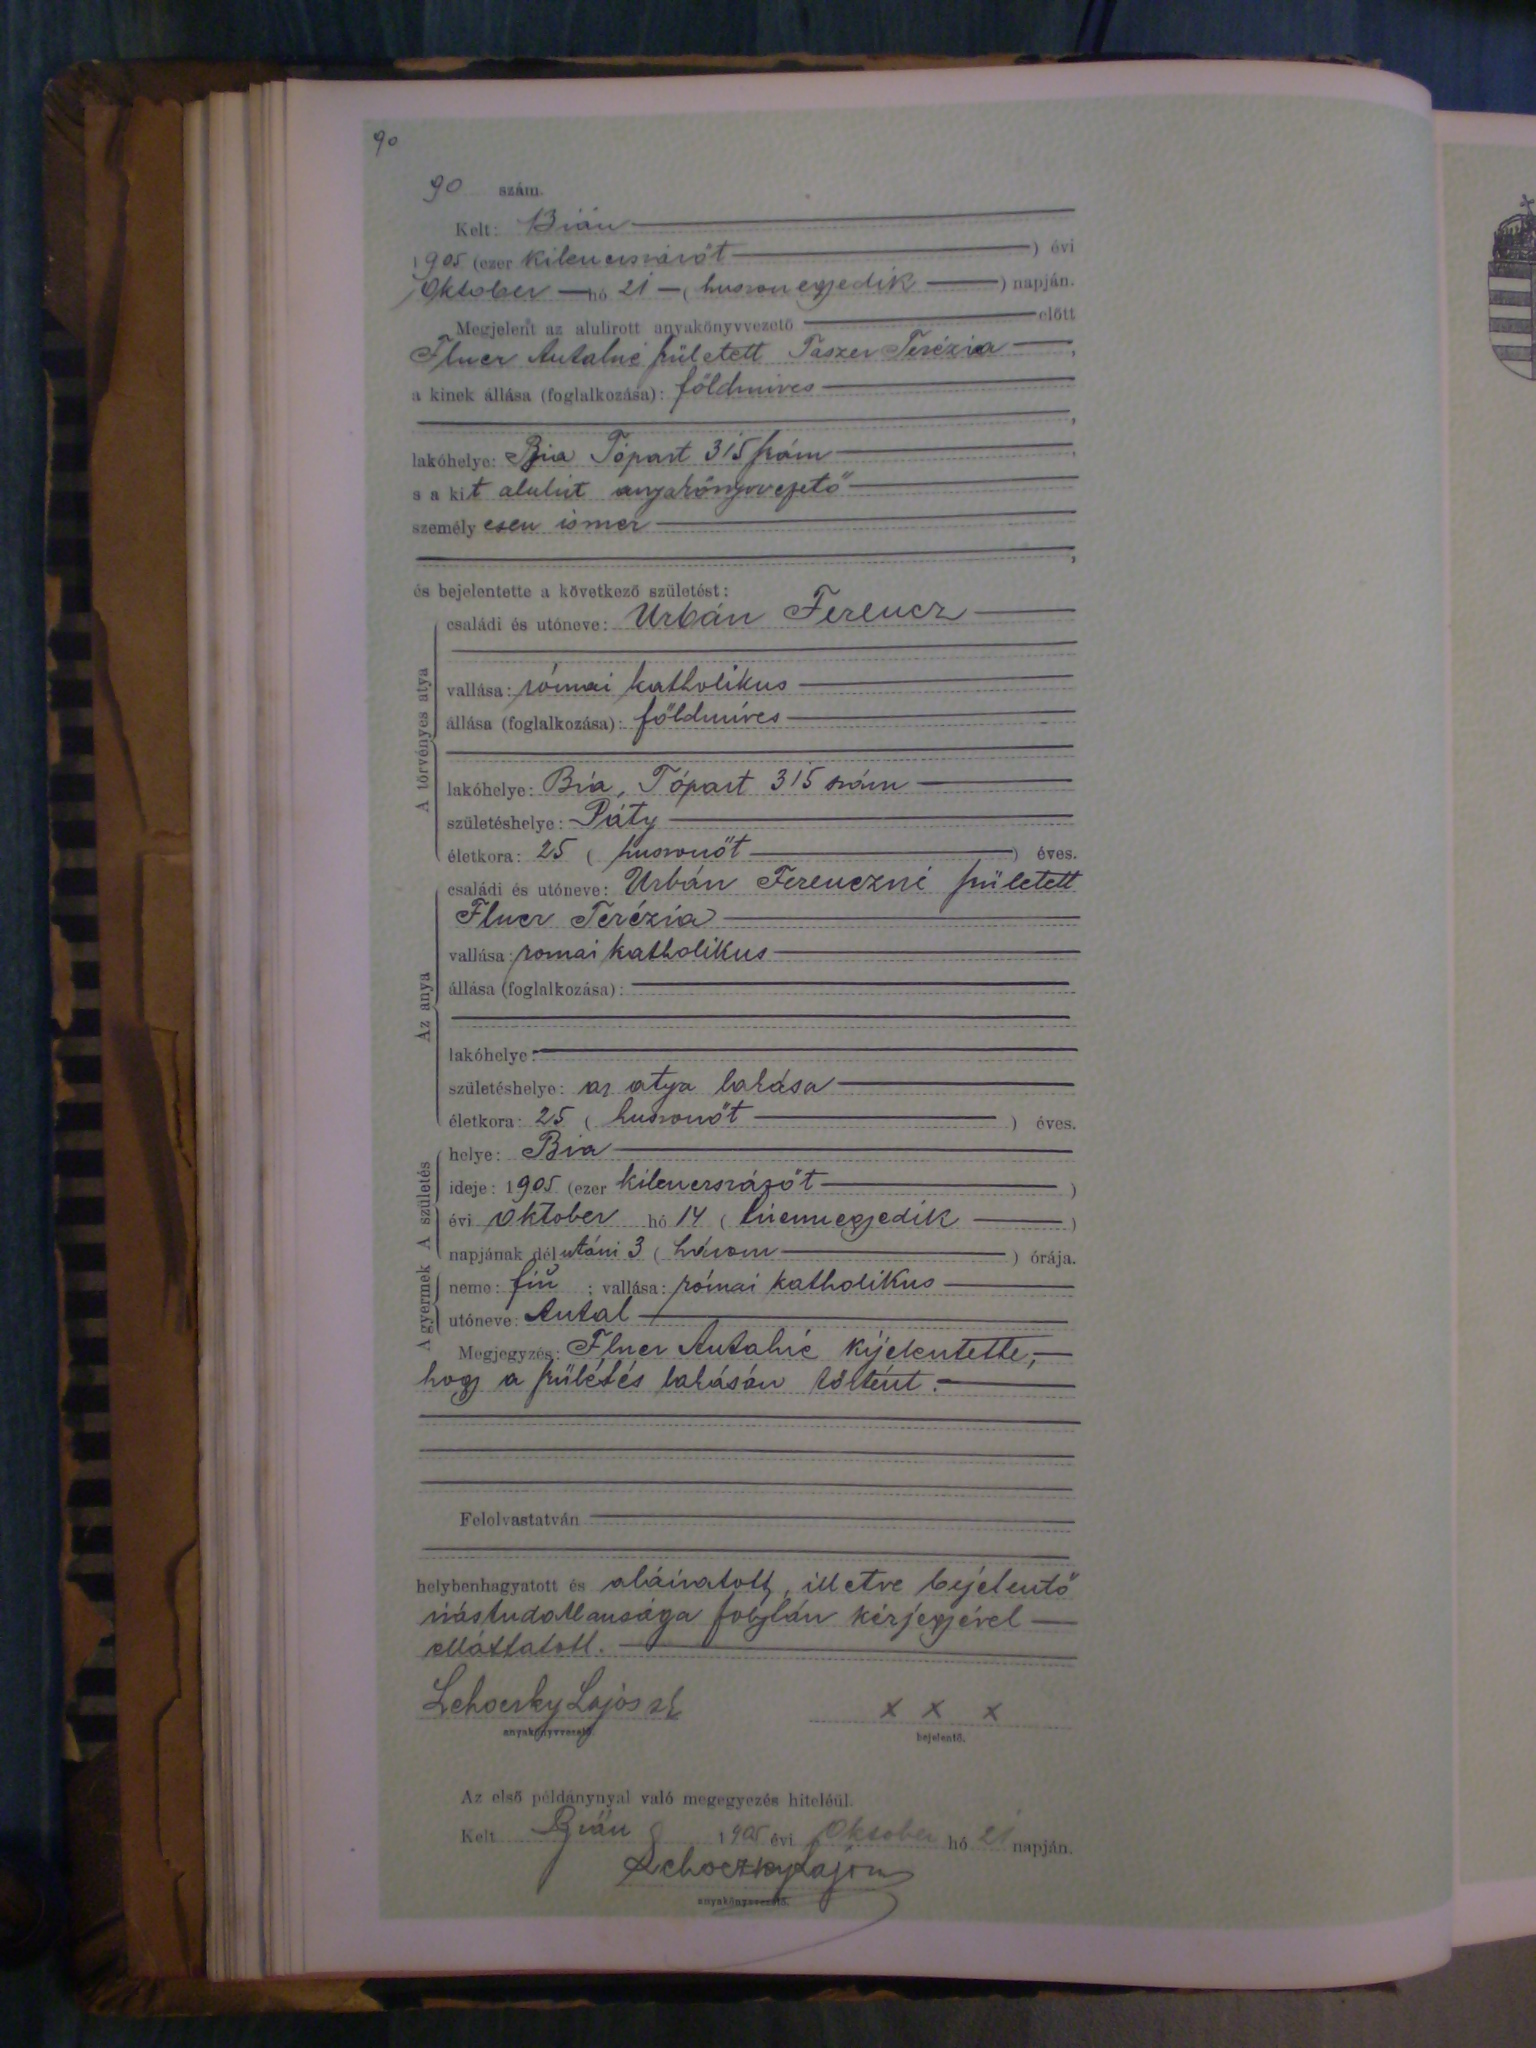 90
90 szám.
Kelt: Bián
1905 (ezer kilencszázöt) évi
Október hó 21 (huszonegyedik) napján.
Megjelent az alulirott anyakönyvvezető előtt
Flner Antalné született Taszer Terézia,
a kinek állása (foglalkozása): földmives
,
lakóhelye: Bia Tópart 315 szám
s a kit alulirt anyakönyvvezető
személyesen ismer
,
és bejelentette a következő születést:
A törvényes atya
családi és utóneve: Urbán Ferencz
vallása: római katholikus
állása (foglalkozása): földmíves
lakóhelye: Bia, Tópart 315 szám
születéshelye: Páty
életkora: 25 (huszonöt) éves.
Az anya
családi és utóneve: Urbán Ferenczné született
Flner Terézia
vallása: romai katholikus
állása (foglalkozása):
lakóhelye:
születéshelye: az atya lakása
életkora: 25 (huszonöt) éves.
A születés
helye: Bia
ideje: 1905 (ezer kilencszázöt)
évi október hó 14 (tizennegyedik)
napjának délutáni 3 (három) órája.
A gyermek
neme: fiú; vallása: római katholikus
utóneve: Antal
Megjegyzés: Flner Antalné kijelentette,
hogy a születés lakásán történt.
Felolvastatván
helybenhagyatott és aláiratott, illetve bejelentő
irástudatlansága folytán kézjegyével
elláttatott.
Lehoczky Lajos sk
anyakönyvvezető.
x x x
bejelentő.
Az első példánynyal való megegyezés hiteléül.
Kelt Bián 1905 évi Október hó 21 napján.
Lehoczky Lajos
anyakönyvvezető.